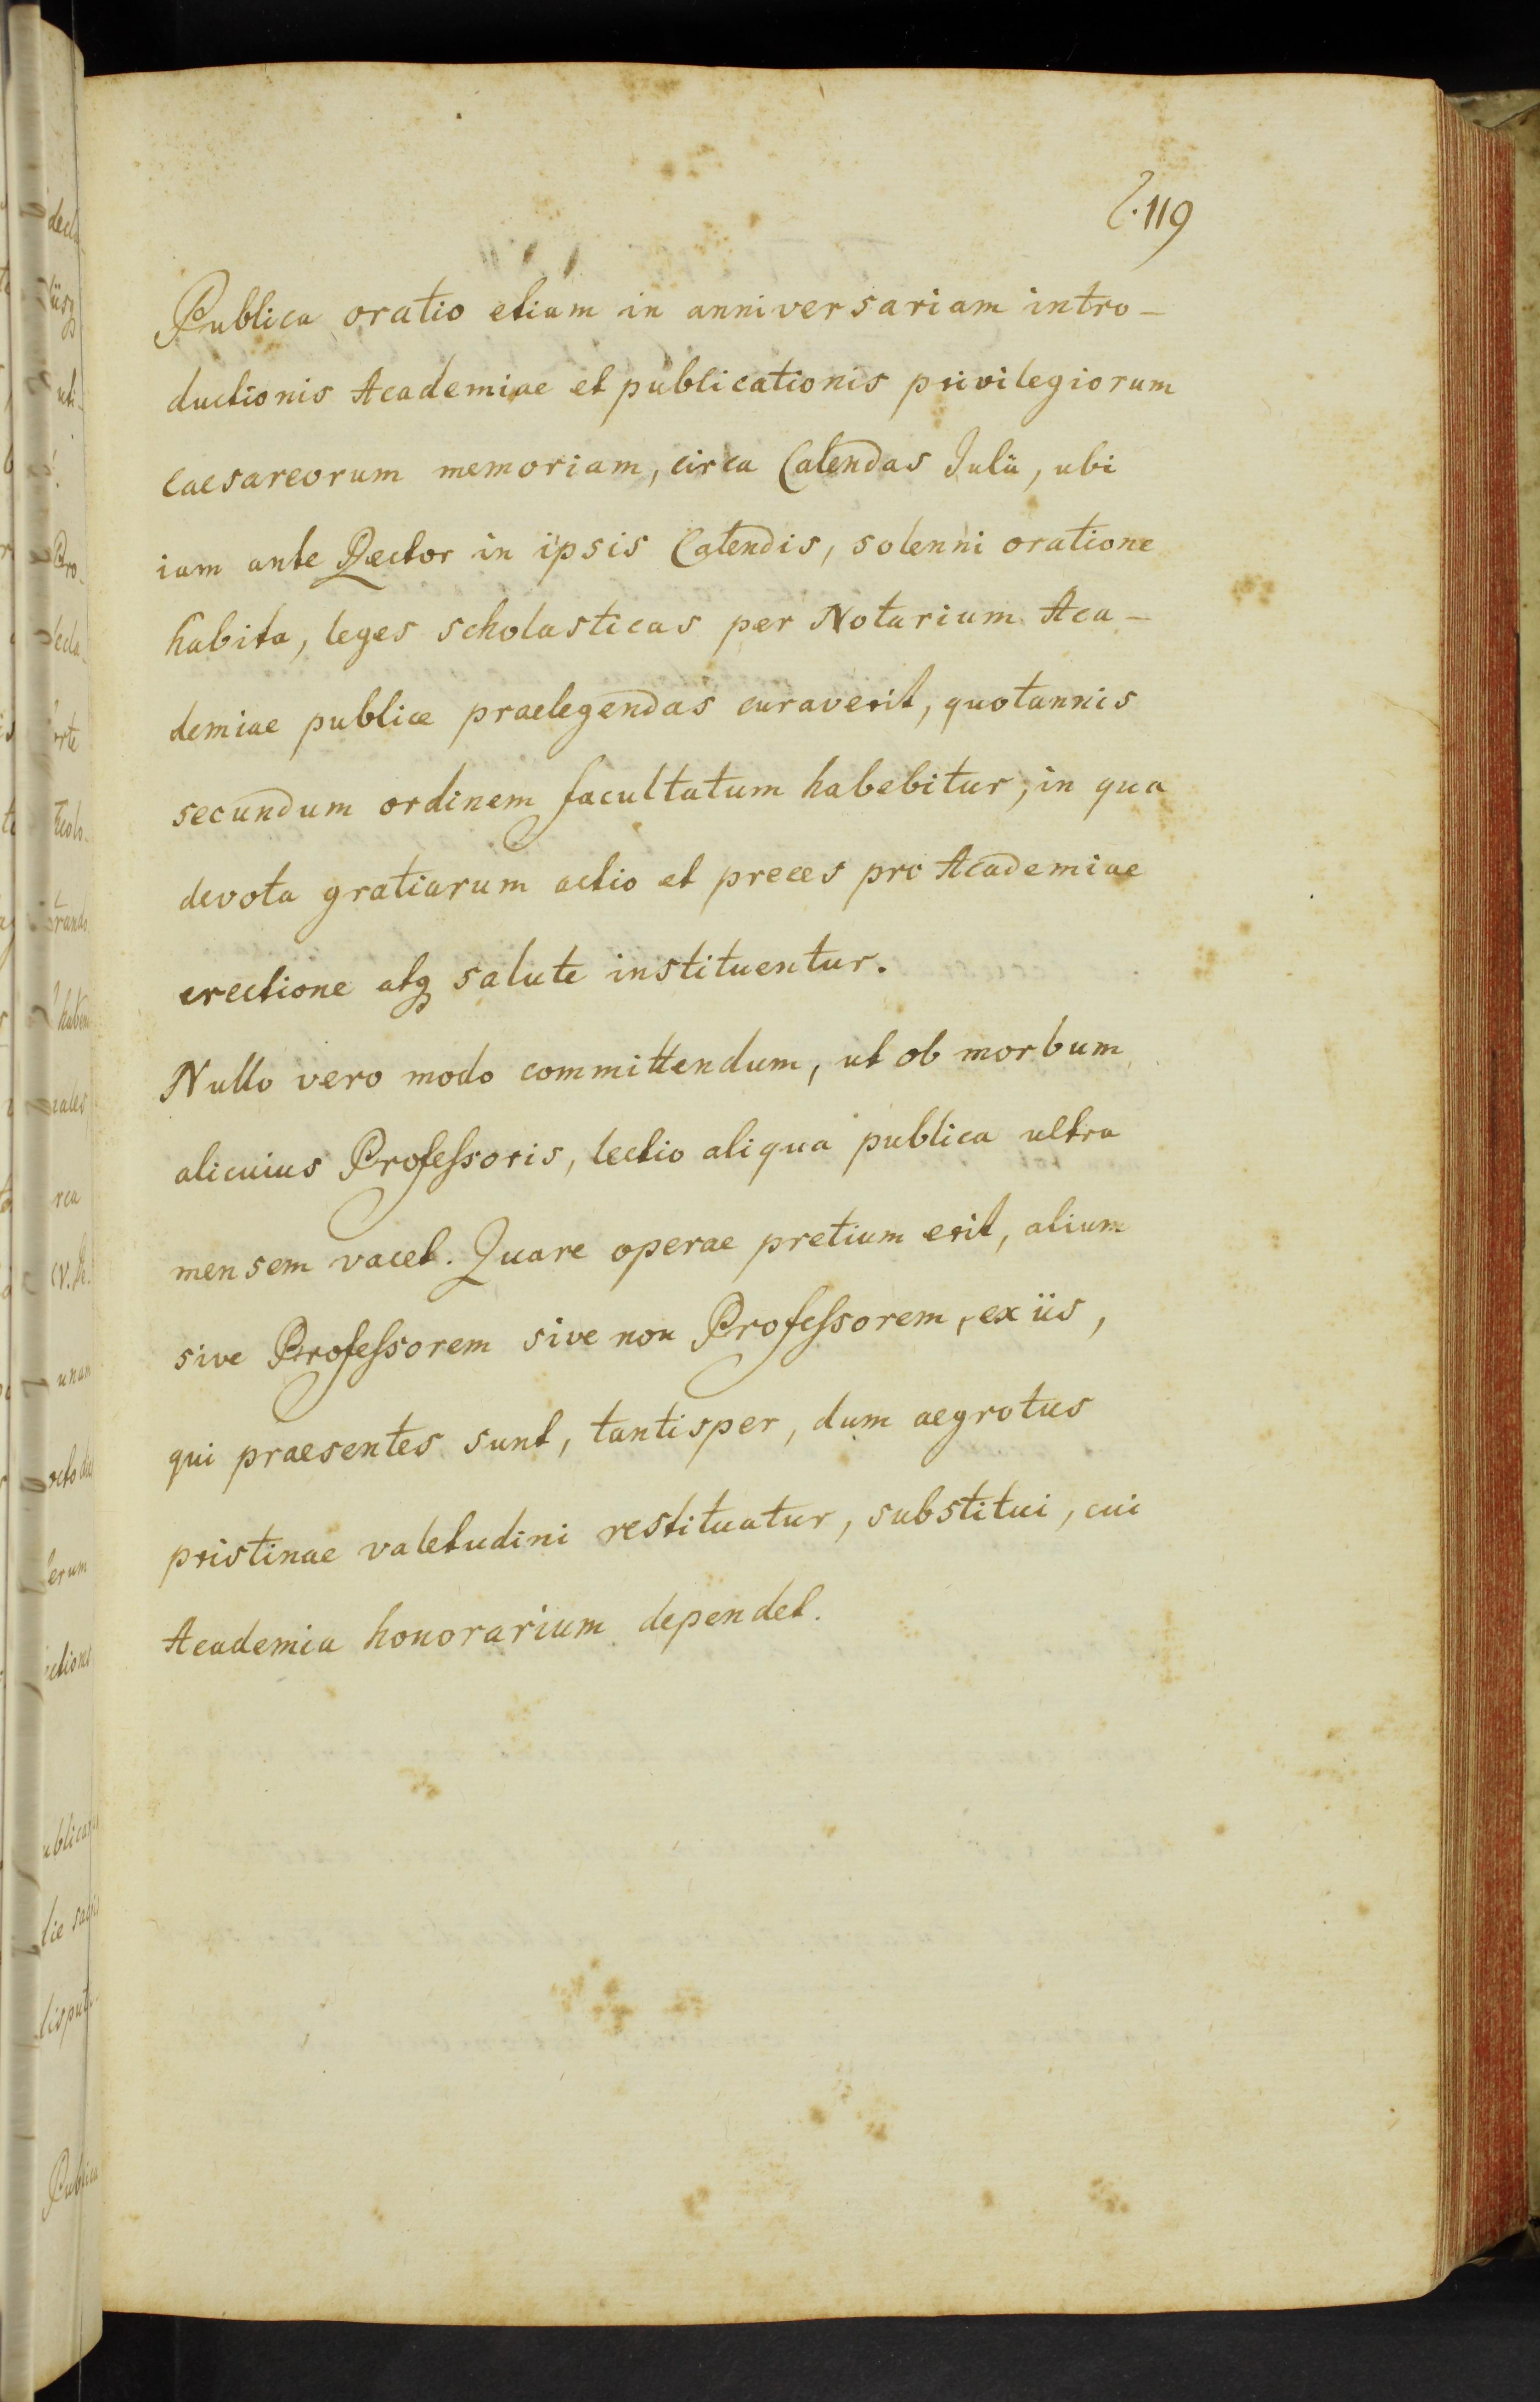 119
Publica oratio etiam in anniversariam intro-
ductionis Academiae et publicationis privilegiorum
caesareorum memoriam, circa Calendas Julii, ubi
iam ante Rector in ipsis Calendis, solenni oratione
habita, leges scholasticas per Notarium Aca-
demiae publice praelegendas curaverit, quotannis
secundum ordinem facultatum habebitur, in qua
devota gratiarum actio et preces pro Academiae
erectione atq salute instituentur.
Nullo vero modo committendum, ut ob morbum
alicuius Professoris, lectio aliqua publica ultra
mensem vacet. Quare operae pretium erit, alium
sive Professorem sive non Professorem, ex iis,
qui praesentes sunt, tantisper, dum aegrotus
pristinae valetudini restituatur, substitui, cui
Academia honorarium dependet.